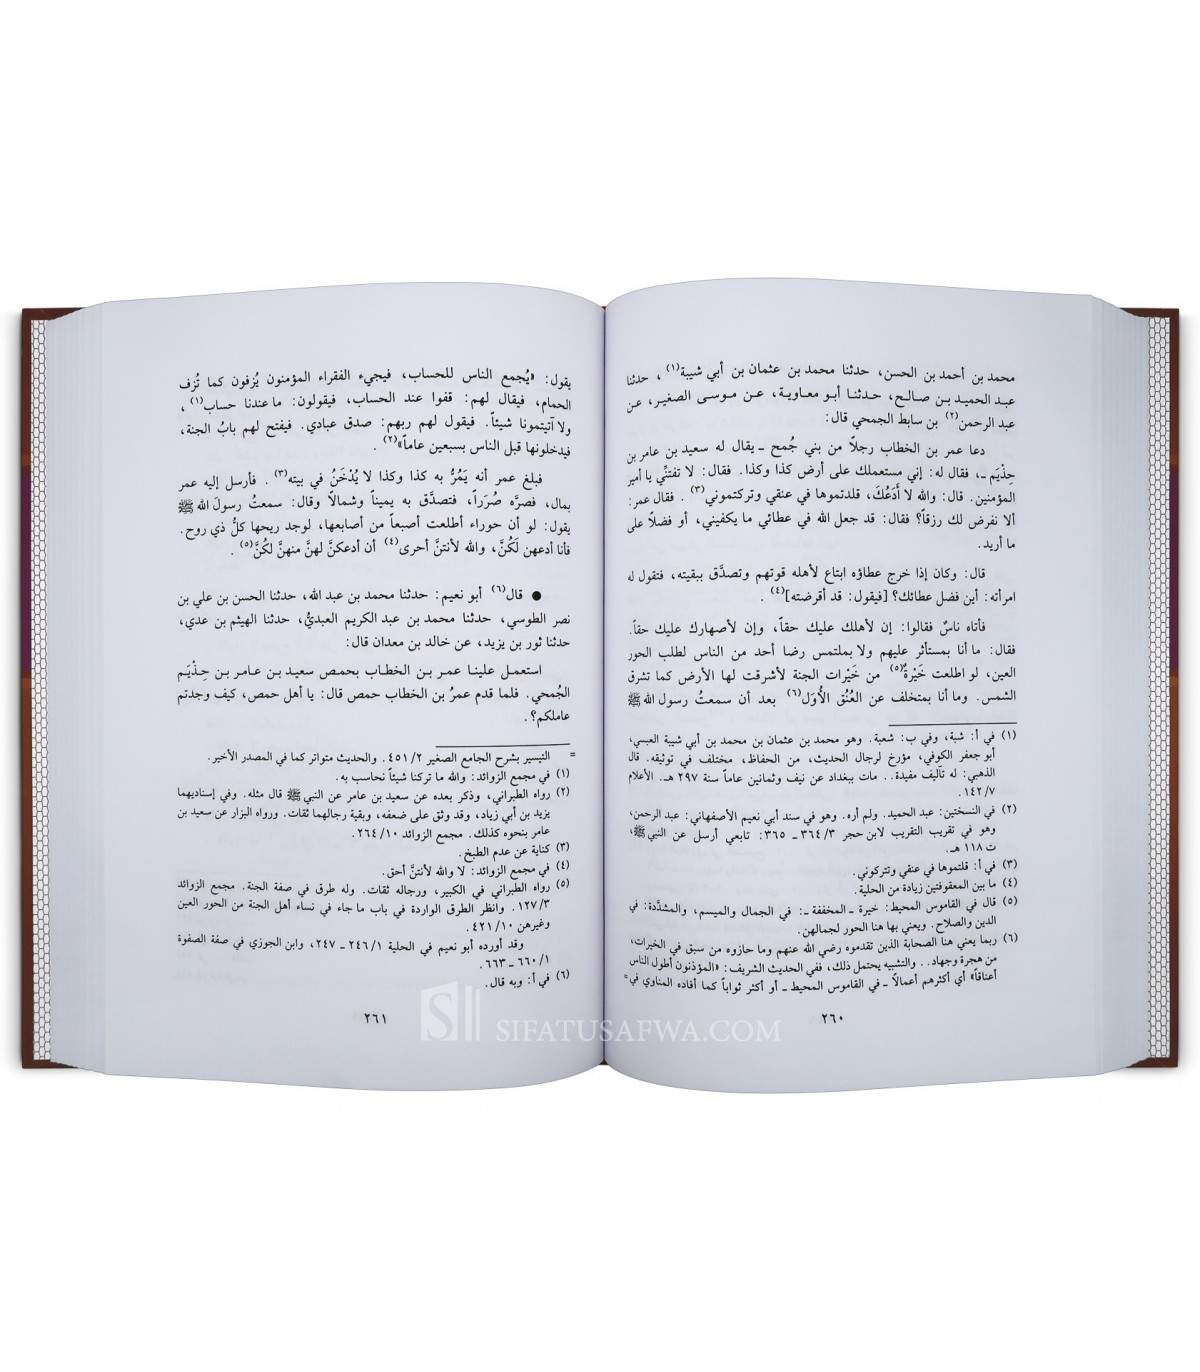 محمد بن أحمد بن الحسن، حدثنا محمد بن عثمان بن أبي شيبة(١) ، حدثنا
عبد الحميد بن صالح، حدثنا أبو معاوية، عن موسى الصغير، عن
عبد الرحمن(٢) بن سابط الجمحي قال:
دعا عمر بن الخطاب رجلاً من بني جُمح ـ يقال له سعيد بن عامر بن
حِذْيَم ـ، فقال له: إني مستعملك على أرض كذا وكذا. فقال: لا تفتنِّي يا أمير
المؤمنين. قال: والله لا أَدَعُكَ، قلدتموها في عنقي وتركتموني(٣) . فقال عمر:
ألا نفرض لك رزقاً؟ فقال: قد جعل الله في عطائي ما يكفيني، أو فضلاً على
ما أريد.
قال: وكان إذا خرج عطاؤه ابتاع لأهله قوتهم وتصدَّق ببقيته، فتقول له
امرأته: أين فضل عطائك؟ [فيقول: قد أقرضته](٤) .
فأتاه ناسٌ فقالوا: إن لأهلك عليك حقاً، وإن لأصهارك عليك حقاً.
فقال: ما أنا بمستأثر عليهم ولا بملتمس رضا أحد من الناس لطلب الحور
العين، لو اطلعت خَيْرةٌ(٥) من خَيْرات الجنة لأشرقت لها الأرض كما تشرق
الشمس. وما أنا بمتخلف عن العُنُق الأُوَل(٦) بعد أن سمعتُ رسول الله ﷺ
(١) في أ: شبة، وفي ب: شعبة. وهو محمد بن عثمان بن محمد بن أبي شيبة العبسي،
أبو جعفر الكوفي، مؤرخ لرجال الحديث، من الحفاظ، مختلف في توثيقه. قال
الذهبي: له تآليف مفيدة.. مات ببغداد عن نيف وثمانين عاماً سنة ٢٩٧ هـ. الأعلام
١٤٢/٧.
(٢) في النسختين: عبد الحميد. ولم أره. وهو في سند أبي نعيم الأصفهاني: عبد الرحمن،
وهو في تقريب التقريب لابن حجر ٣٦٤/٣ ـ ٣٦٥: تابعي أرسل عن النبي ﷺ،
ت ١١٨ هـ.
(٣) في أ: قلتموها في عنقي وتتركوني.
(٤) ما بين المعقوفتين زيادة من الحلية.
(٥) قال في القاموس المحيط: خيرة ـ المخففة ـ: في الجمال والميسم، والمشدَّدة: في
الدين والصلاح. ويعني بها هنا الحور لجمالهن.
(٦) ربما يعني هنا الصحابة الذين تقدموه رضي الله عنهم وما حازوه من سبق في الخيرات،
من هجرة وجهاد.. والتشبيه يحتمل ذلك، ففي الحديث الشريف: «المؤذنون أطول الناس
أعناقاً» أي أكثرهم أعمالاً ـ في القاموس المحيط ـ أو أكثر ثواباً كما أفاده المناوي في =
٢٦٠
يقول: «يُجمع الناس للحساب، فيجيء الفقراء المؤمنون يُزفون كما تُزف
الحمام، فيقال لهم: قفوا عند الحساب، فيقولون: ما عندنا حساب(١) ،
ولا آتيتمونا شيئاً. فيقول لهم ربهم: صدق عبادي. فيفتح لهم بابُ الجنة،
فيدخلونها قبل الناس بسبعين عاماً»(٢) .
فبلغ عمر أنه يَمُرُّ به كذا وكذا لا يُدْخَنُ في بيته(٣) . فأرسل إليه عمر
بمال، فصرَّه صُرَراً، فتصدَّق به يميناً وشمالاً وقال: سمعتُ رسولَ الله ﷺ
يقول: لو أن حوراء أطلعت أصبعاً من أصابعها، لوجد ريحها كلُّ ذي روح.
فأنا أدعهن لَكُنَّ، والله لأنتنَّ أحرى(٤) أن أدعكنَّ لهنَّ منهنَّ لكُنَّ(٥) .
● قال(٦) أبو نعيم: حدثنا محمد بن عبد الله، حدثنا الحسن بن علي بن
نصر الطوسي، حدثنا محمد بن عبد الكريم العبديُّ، حدثنا الهيثم بن عدي،
حدثنا ثور بن يزيد، عن خالد بن معدان قال:
استعمل علينا عمر بن الخطاب بحمص سعيد بن عامر بن حِذْيَم
الجُمحي. فلما قدم عمرُ بن الخطاب حمص قال: يا أهل حمص، كيف وجدتم
عاملكم؟.
= التيسير بشرح الجامع الصغير ٤٥١/٢. والحديث متواتر كما في المصدر الأخير.
(١) في مجمع الزوائد: والله ما تركنا شيئاً نحاسب به.
(٢) رواه الطبراني، وذكر بعده عن سعيد بن عامر عن النبي ﷺ قال مثله. وفي إسناديهما
يزيد بن أبي زياد، وقد وثق على ضعفه، وبقية رجالهما ثقات. ورواه البزار عن سعيد بن
عامر بنحوه كذلك. مجمع الزوائد ٢٦٤/١٠.
(٣) كناية عن عدم الطبخ.
(٤) في مجمع الزوائد: لا والله لأنتنَّ أحق.
(٥) رواه الطبراني في الكبير، ورجاله ثقات. وله طرق في صفة الجنة. مجمع الزوائد
١٢٧/٣. وانظر الطرق الواردة في باب ما جاء في نساء أهل الجنة من الحور العين
وغيرهن ٤٢١/١٠.
وقد أورده أبو نعيم في الحلية ٢٤٦/١ ـ ٢٤٧، وابن الجوزي في صفة الصفوة
٦٦٠/١ ـ ٦٦٣.
(٦) في أ: وبه قال.
٢٦١
SIFATUSAFWA.COM